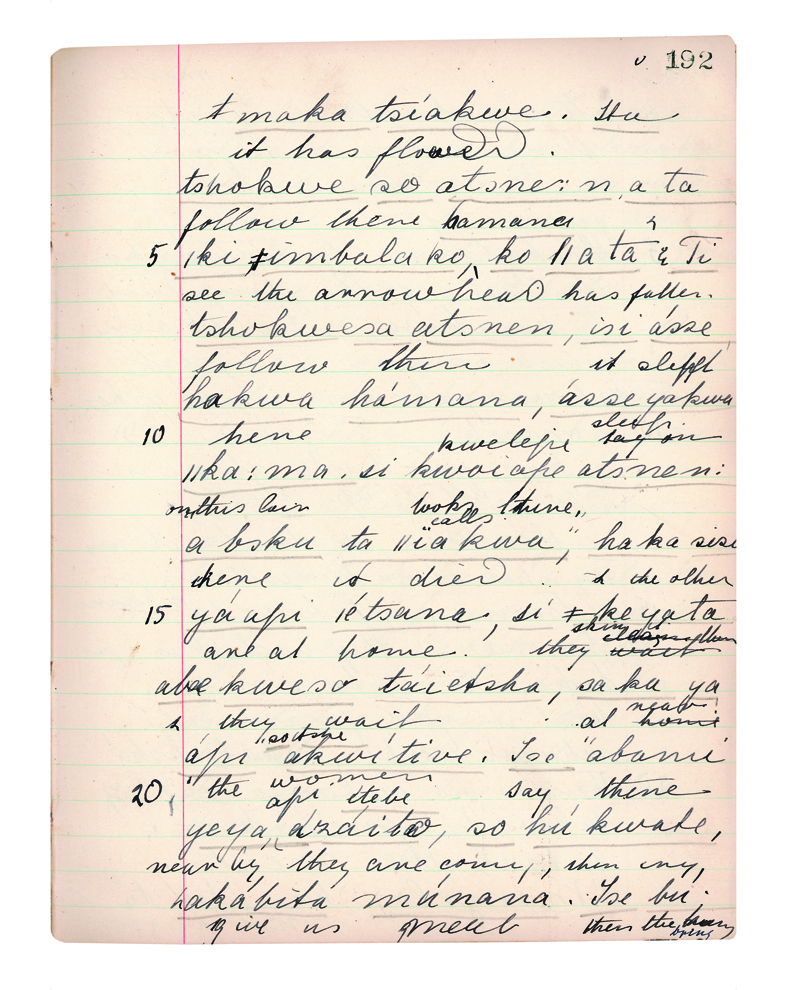 192
t maka tsíakwe. Ha
it has flowed.
tshokwe so atsne: n a ta
follow there hamana &
5 iki ǂimbala ko, ko ǁa ta & Ti
see the arrowhead has fallen.
tshokwesa atsnen, isi ásse
follow there it slept
hakwa hámana, ásse yakwa
sleep.
10 here kwelepe say on
ǁka: ma. si kwoiape atsnen:
on this looks there,,
calls
a bsku ta "ǁíakwa", haka sise
here it died .. & the other
15 yá api iétsana, sí ǂ keyata
skin
are at home. they wait
abae kweso táietsha, sa ka ya
near
& they wait at home
"sotshe
ápi akwítíve. Ise "abami
the women say there
20 api ítebe
yeya, dzáita, so hú kwate,
near by, they are coming, then
hakábíta múnana. Ise bu.
give us meat then the
bring